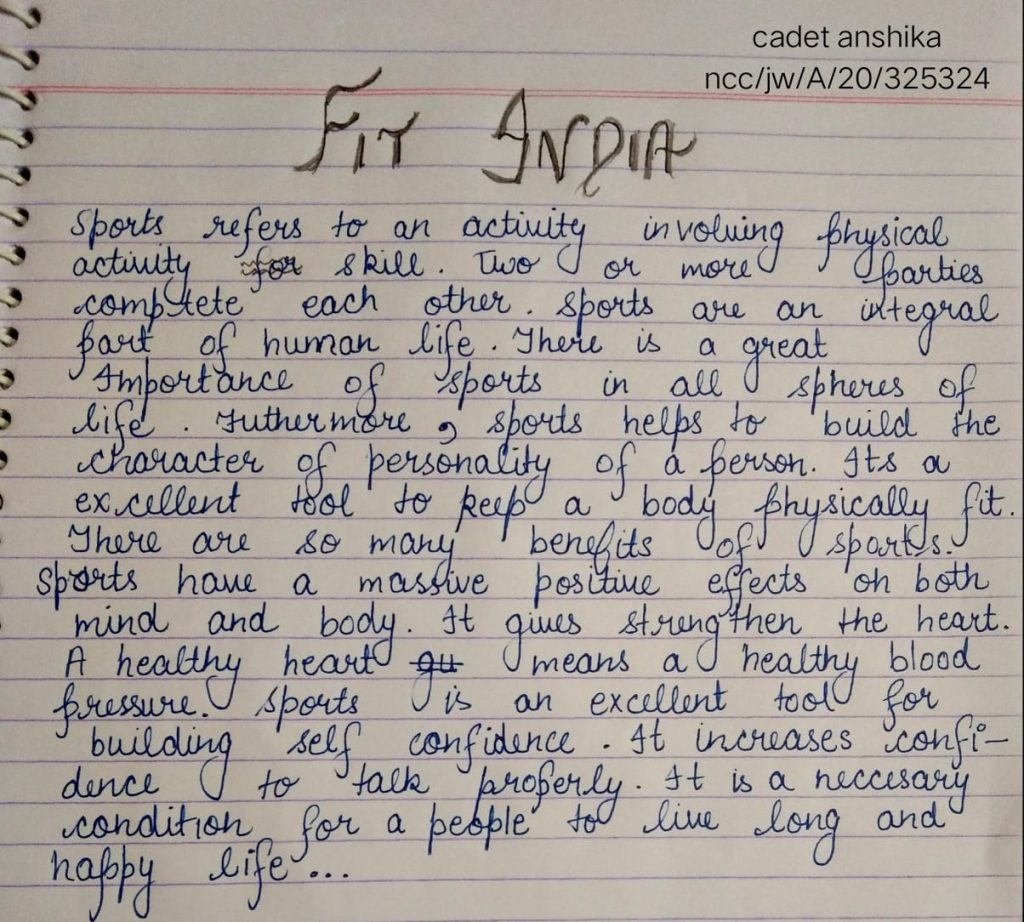 cadet anshika
ncc/jw/A/20/325324
FIT INDIA
Sports refers to an activity involving physical
activity skill. Two or more parties
comptete each other. Sports are an integral
part of human life. There is a great
Importance of sports in all spheres of
life. Futhermore, sports helps to build the
character of personality of a person. Its a
excellent tool to keep a body physically fit.
There are so many benefits of sports.
Sports have a massive positive effects on both
mind and body. It gives strengthen the heart.
A healthy heart means a healthy blood
pressure. Sports is an excellent tool for
building self confidence. It increases confi-
dence to talk properly. It is a neccesary
condition for a people to live long and
happy life...